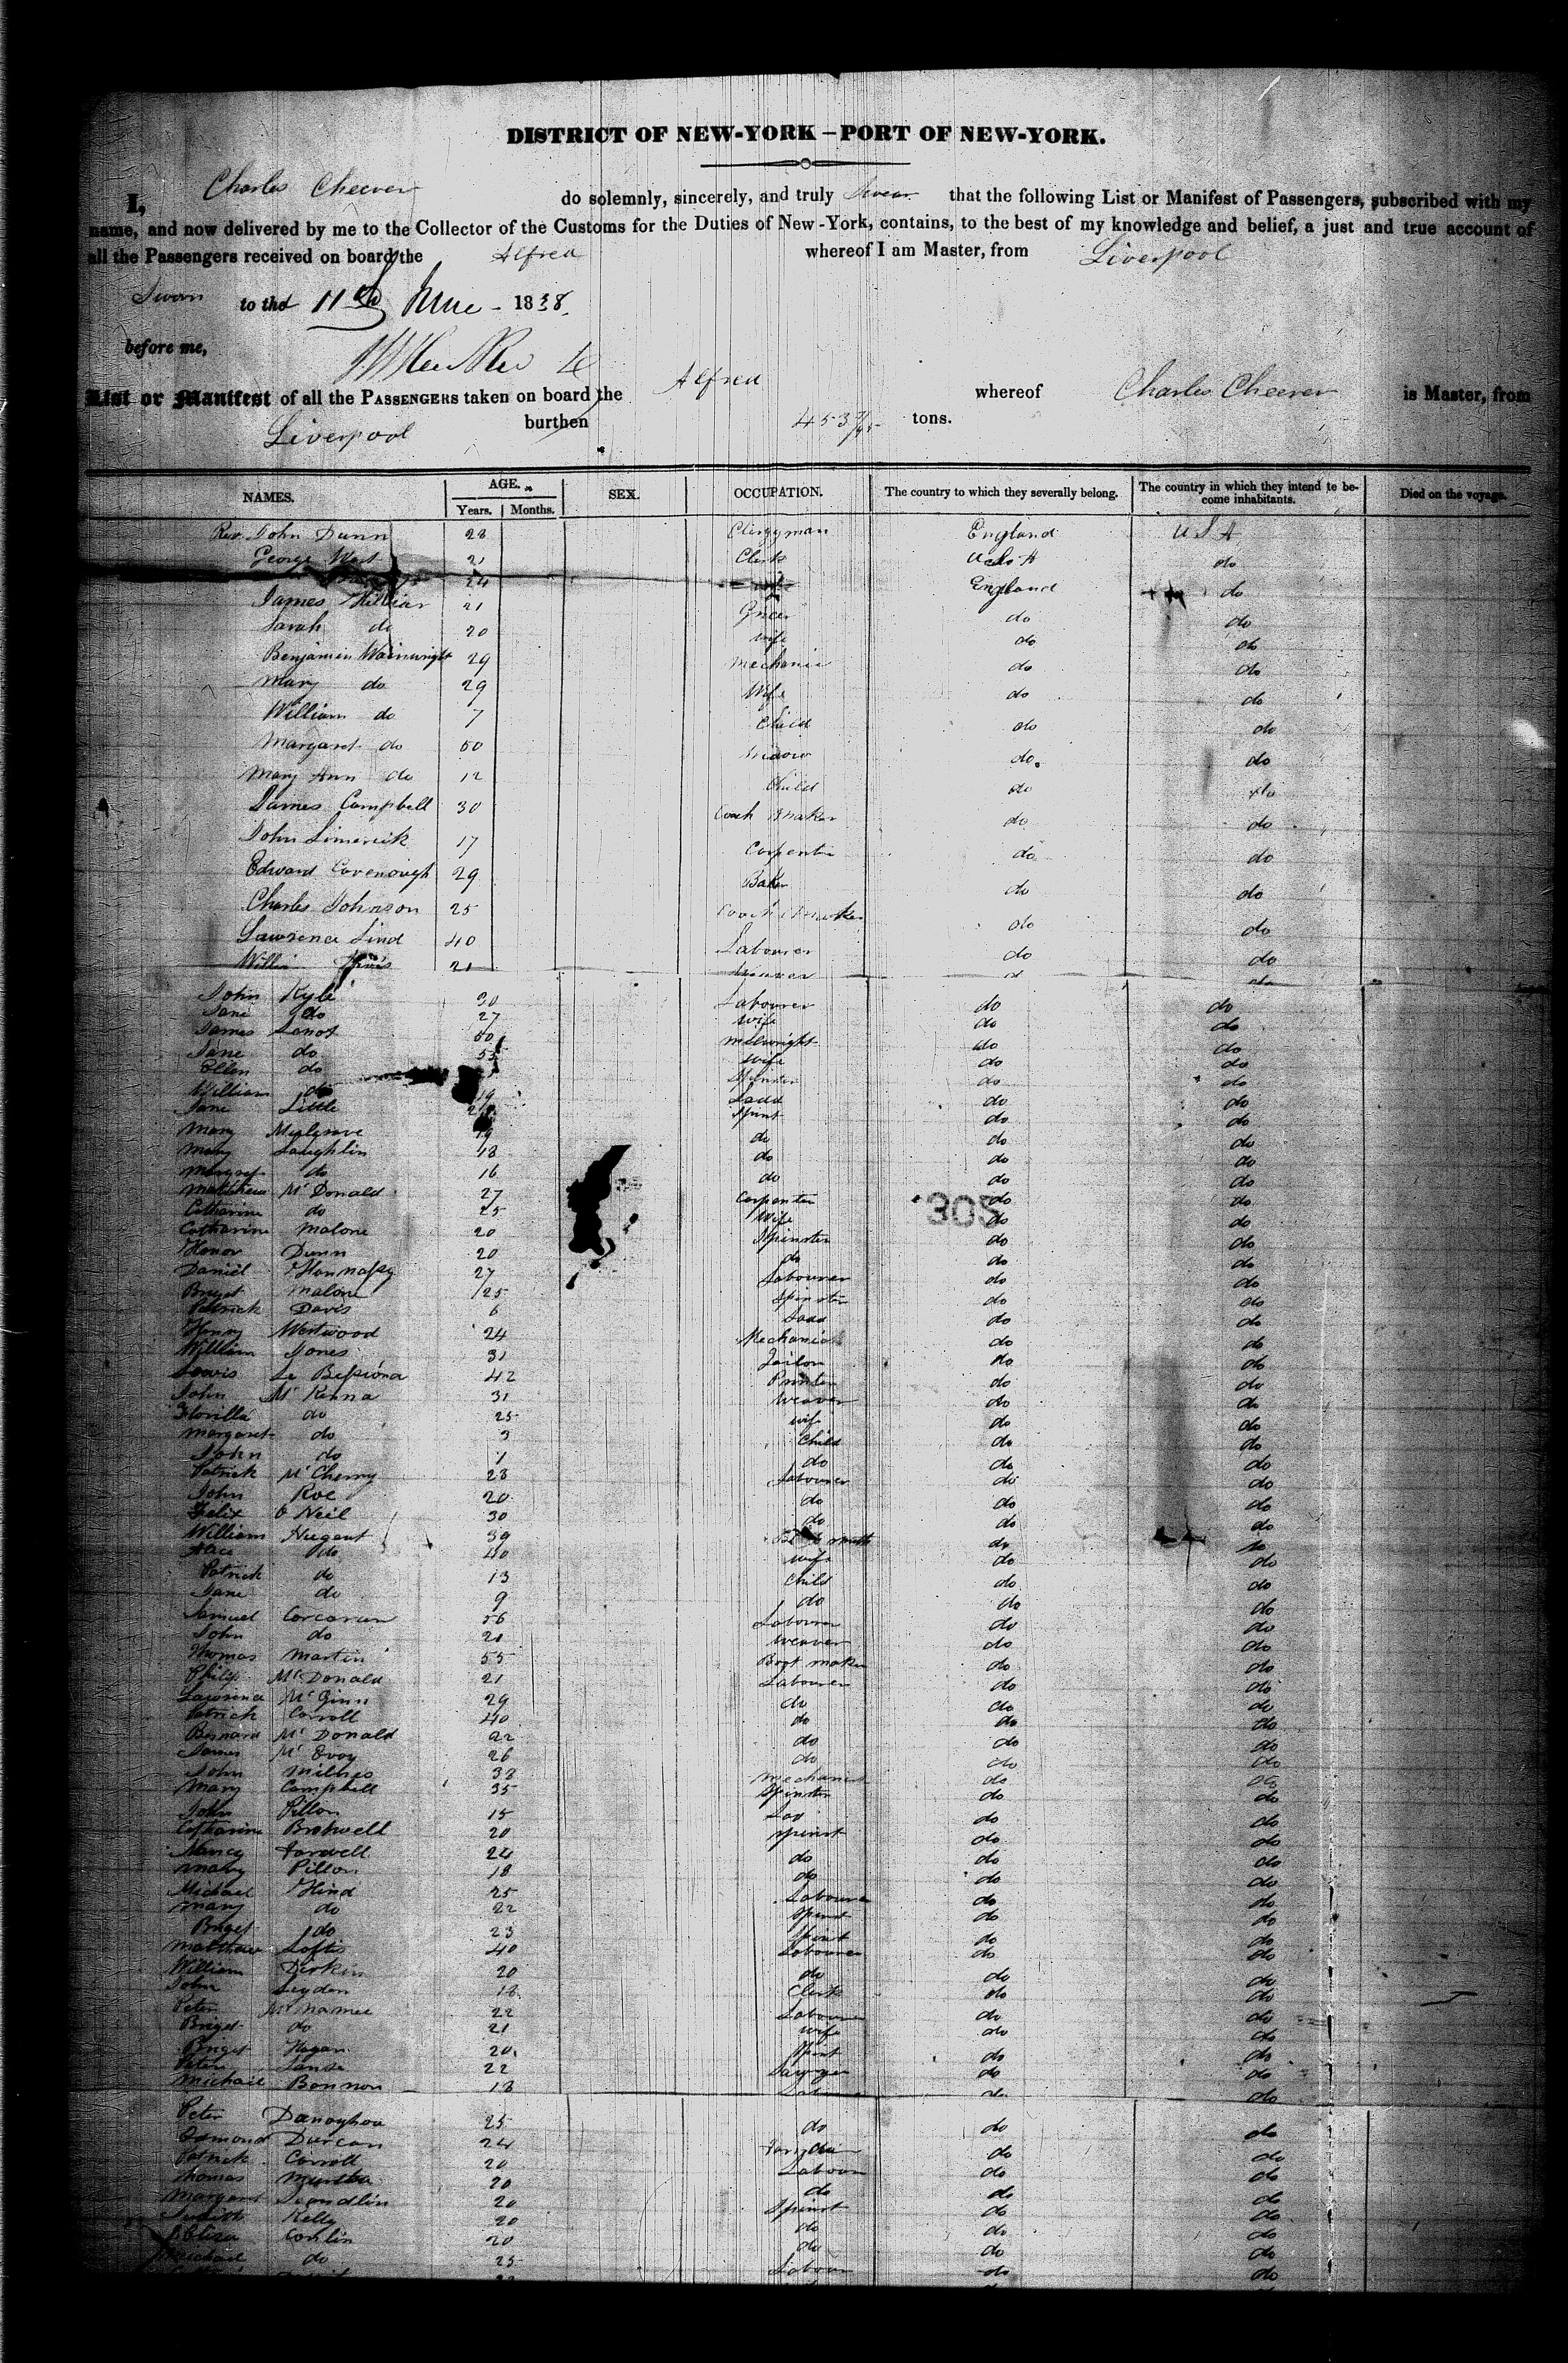 DISTRICT OF NEW-YORK – PORT OF NEW-YORK.
I, Charles Cheever do solemnly, sincerely, and truly swear that the following List or Manifest of Passengers, subscribed with my
name, and now delivered by me to the Collector of the Customs for the Duties of New-York, contains, to the best of my knowledge and belief, a just and true account of
all the Passengers received on board the Alfred whereof I am Master, from Liverpool
Sworn to the 11th June - 1838.
before me,
List or Manifest of all the PASSENGERS taken on board the Alfred whereof Charles Cheever is Master, from
Liverpool burthen 453 tons.
NAMES. AGE. SEX. OCCUPATION. The country to which they severally belong. The country in which they intend to be-come inhabitants. Died on the voyage.
Years. Months.
Rev. John Dunn 28 Clergyman England USA
George West 21 Clerk U S A do
24 England do
James 21 Grocer do do
Sarah do 20 wife do do
Benjamin Wainwright 29 Mechanic do do
Mary do 29 Wife do do
William do 7 Child do do
Margaret do 50 Widow do. do
Mary Ann do 12 Child do do
James Campbell 30 Coach Maker do do
John Limerick 17 Carpenter do do
Edward Cavenough 29 Baker do do
Charles Johnson 25 Coach Maker do do
Lawrence Lind 40 Labourer do do
21
John Kyle 30 Labourer do do
Jane do 27 wife do do
James 50 millwright do do
Jane do 53 wife do do
Ellen do Spinster do do
William do 19 Ladd do do
Jane Little Spinst do do
Mary Mulgrave 19 do do do
Mary Laughlin 18 do do do
Margret do 16 do do do
Matthew Mc Donald 27 Carpenter do do
305
Catharine do 25 Wife do do
Catharine Malone 20 Spinster do do
Honor Dunn 20 do do do
Daniel 27 Labourer do do
Briget Malone 25 Spinster do do
Patrick Davis 6 Ladd do do
Henry Westwood 24 Mechanic do do
William Jones 31 Tailor do do
Lewis 42 Printer do do
John Mc Kenna 31 Weaver do do
do 25 wife do do
Margaret do 3 Child do do
John do 1 do do do
Patrick Mc Cherry 28 Labourer do do
John Roe 20 do do do
Felix O Neil 30 do do do
William Nugent 39 do do
Alice do 40 wife do do
Patrick do 13 Child do do
Jane do 9 do do do
Samuel Corcoran 56 Labourer do do
John do 21 Weaver do do
Thomas Martin 55 Boot maker do do
Philip Mc Donald 21 Labourer do do
Lawrence Mc Ginn 29 do do do
Patrick Carroll 40 do do do
Bernard Mc Donald 22 do do do
James Mc Evoy 26 do do do
John 38 Mechanic do do
Mary Campbell 35 Spinster do do
John Pillon 15 Lad do do
Catharine 20 Spinst do do
Nancy Farwell 24 do do do
Mary Pillon 18 do do do
Michael Hind 25 Labourer do do
Mary do 22 Spinst do do
Briget do 23 Spinst do do
Matthew Loftis 40 Labourer do do
William Dirkin 20 do do do
John Leyden 18 Clerk do do
Peter Mc Namee 22 Labourer do do
Briget do 21 wife do do
Briget Hagan 20 Spinst do do
Peter 22 Sawyer do do
Michael Bannon 18 do
Peter 25 do do do
Edmond Durcan 24 do do
Patrick Carroll 20 Labour do do
Thomas 20 do do do
Margaret 20 Spinst do do
Kelly 20 do do do
Eliza Conlin 20 do do do
Michael do 25 Labour do do